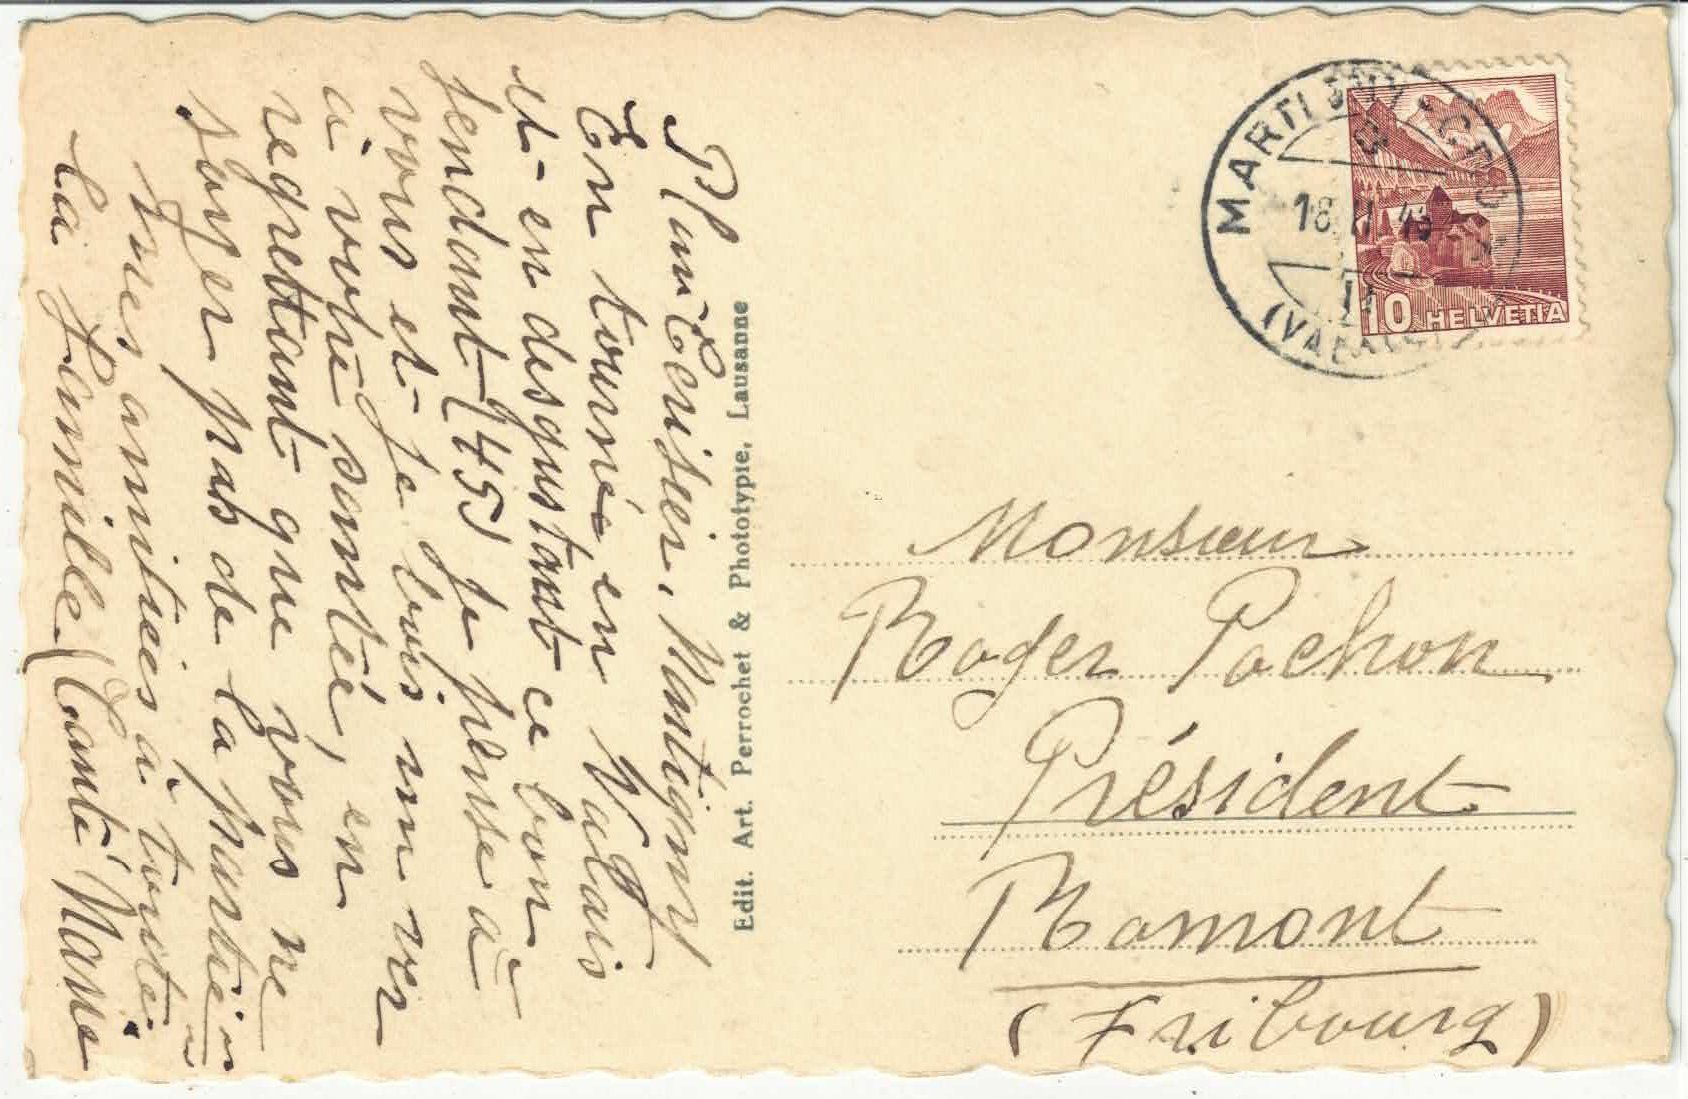 Plan Cerisier, Martigny
En tournée en Valais
et en dégustant ce bon
fendant (45) je pense à
vous et je bois un ver
à votre santée, en
regrettant que vous ne
soyer pas de la partie
mes amitiés à toute
la famille
Edit. Art. Perrochet & Phototypie, Lausanne
MARTIGNY-
18. II
(VALAIS)
10 HELVETIA
Monsieur
Roger Pochon
Président
Romont
(Fribourg)